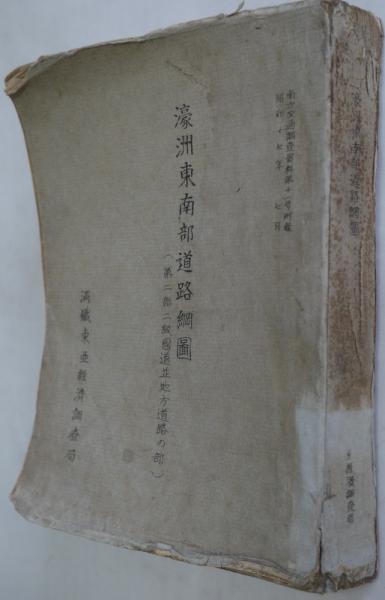 南方交通調査資料第十一号附録
昭和十七年七月
濠洲東南部道路網圖
(第二部二級國道並地方道路の部)
滿鐵東亞經濟調査局
濠洲東南部道路網圖